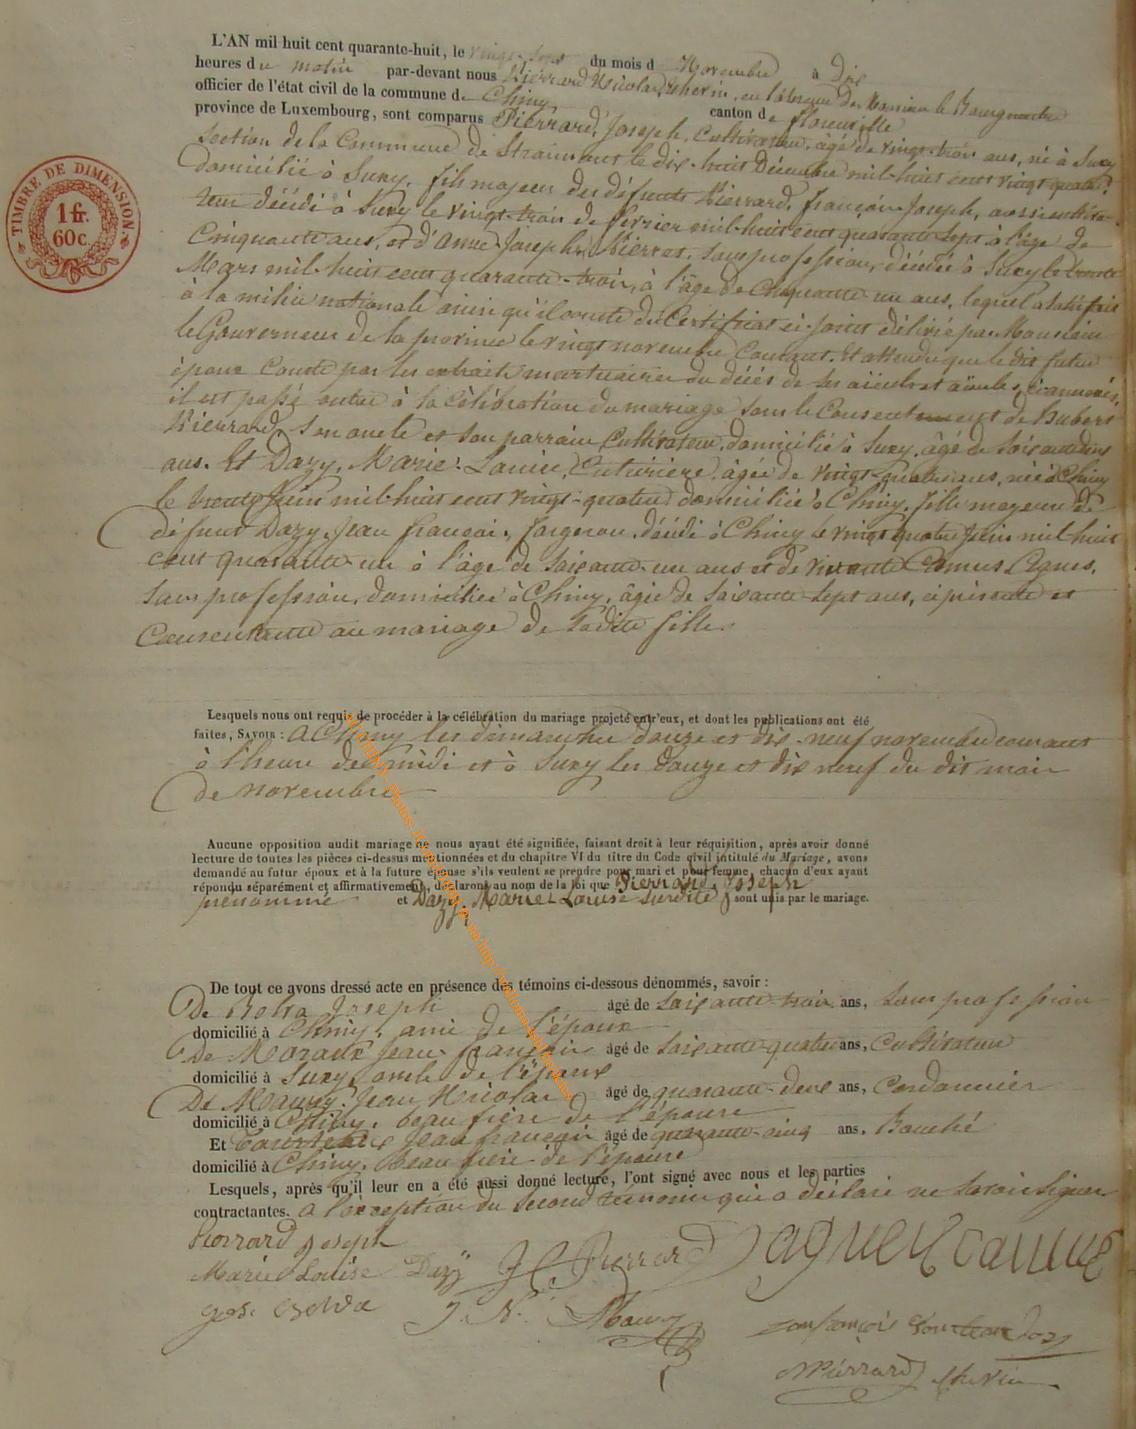 L'AN mil huit cent quarante-huit, le vingt-sept du mois d Novembre à dix
heures du matin par-devant nous Pierrard Nicolas, Echevin, en l'absence de Monsieur le Bourgmestre
officier de l'état civil de la commune de Chiny canton de florenville
province de Luxembourg, sont comparus Pierrard, Joseph, Cultivateur, âgé de vingt-trois ans, né à Suxy
Section de la Commune de Straimont le dix-huit Décembre mil-huit cent vingt quatre
domicilié à Suxy, fils majeur des défunts Pierrard, françois-Joseph, aussi cultiva-
teur décédé à Suxy le vingt-trois de février mil-huit cent quarante-sept à l'âge de
Cinquante ans, et d'Anne-Joseph Pierret, sans profession, décédée à Suxy le trente
Mars mil-huit cent quarante-trois, à l'âge de Cinquante un ans, lequel a satisfait
à la milice nationale ainsi qu'il conste du Certificat ci-joint délivré par Monsieur
le Gouverneur de la province le vingt novembre Courant. Et attendu que le dit futur
époux Conste par les extraits mortuaires du décès de ses aïeuls et aïeules ci-annexés,
il est passé outre à la Célébration du mariage sous le Consentement de Hubert
Pierrard, Son oncle et son parrain, Cultivateur, domicilié à Suxy, âgé de Soixante dix
ans. Et Dazy, Marie-Louise, Couturière, âgée de vingt-quatre ans, née à Chiny
le trente Juin mil-huit cent vingt-quatre, domiciliée à Chiny, fille majeure de
défunt Dazy, Jean françois, forgeron, décédé à Chiny le vingt quatre Juin mil-huit
cent quarante-un à l'âge de Soixante-un ans et de vivante Camus Agnès,
Sans profession, domiciliée à Chiny, âgée de Soixante-Sept ans, ci présente et
Consentante au mariage de Sadite fille.
Lesquels nous ont requis de procéder à la célébration du mariage projeté entr'eux, et dont les publications ont été
faites, SAVOIR : A Chiny les dimanches douze et dix-neuf novembre courant
à l'heure de midi et à Suxy les douze et dix neuf du dit mois
de novembre
Aucune opposition audit mariage ne nous ayant été signifiée, faisant droit à leur réquisition, après avoir donné
lecture de toutes les pièces ci-dessus mentionnées et du chapitre VI du titre du Code civil intitulé du Mariage, avons
demandé au futur époux et à la future épouse s'ils veulent se prendre pour mari et pour femme, chacun d'eux ayant
répondu séparément et affirmativement, déclarons au nom de la loi que Pierrard, Joseph
prénommé et Dazy, Marie-Louise Surdite sont unis par le mariage.
De tout ce avons dressé acte en présence des témoins ci-dessous dénommés, savoir :
De Joseph âgé de Soixante-trois ans, Sans profession
domicilié à Chiny, ami de l'époux
De Jean-françois âgé de Soixante-quatre ans, Cultivateur
domicilié à Suxy, oncle de l'époux
De Maury, Jean Nicolas âgé de quarante-deux ans, Cordonnier
domicilié à Chiny, beau frère de l'épouse
Et Jean françois âgé de quarante-cinq ans,
domicilié à Chiny, beau frère de l'épouse
Lesquels, après qu'il leur en a été aussi donné lecture, l'ont signé avec nous et les parties
contractantes. A l'exception du Second témoin qui a déclaré ne Savoir Signer
Pierrard joseph
Marie Louise Dazy Pierrard agnes camus
J. N. Maury
Pierrard Echevin
TIMBRE DE DIMENSION
1 fr.
60 c.